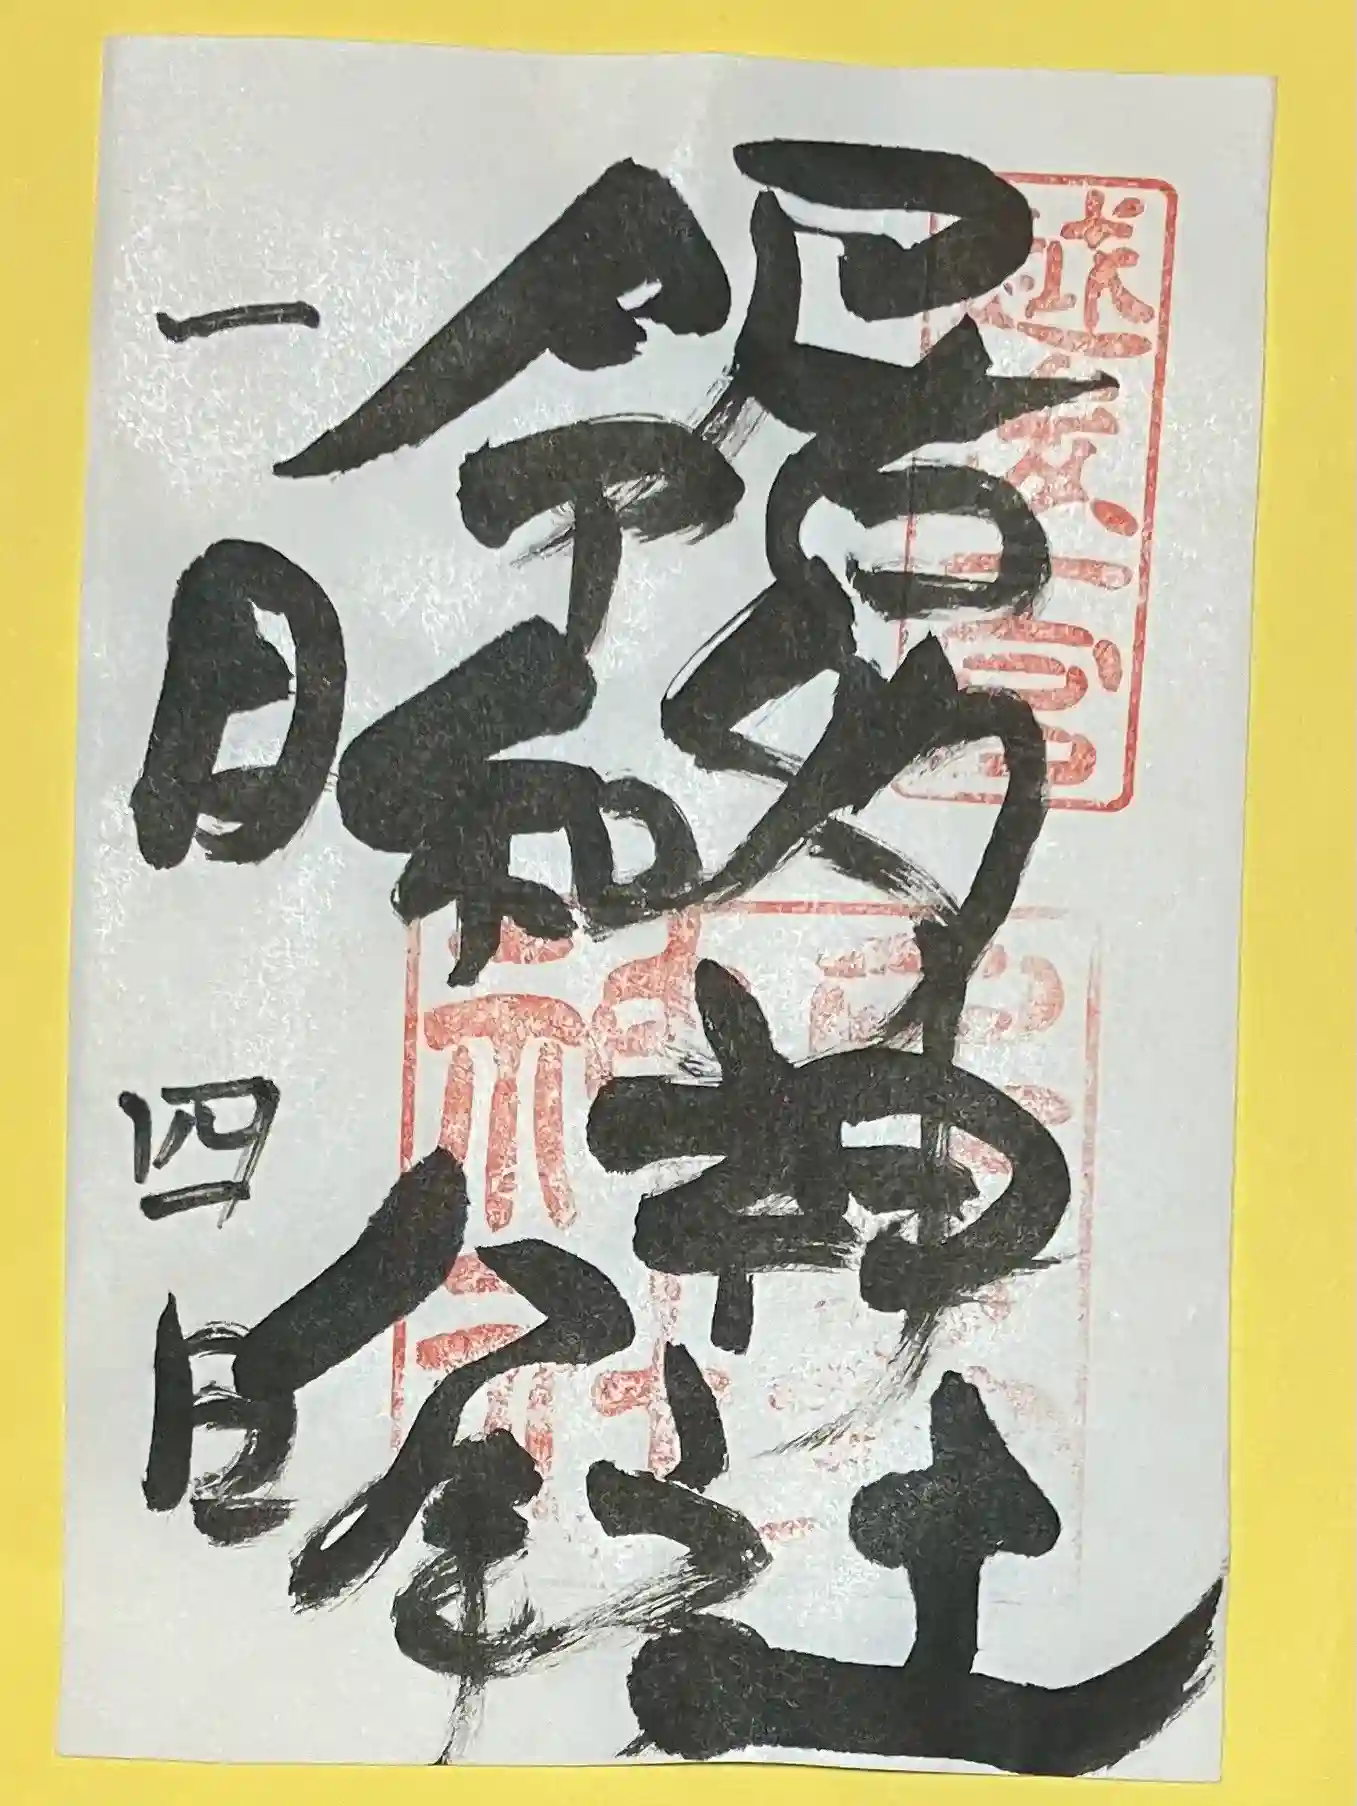 越後一宮
居多神社
令和八年
一月四日